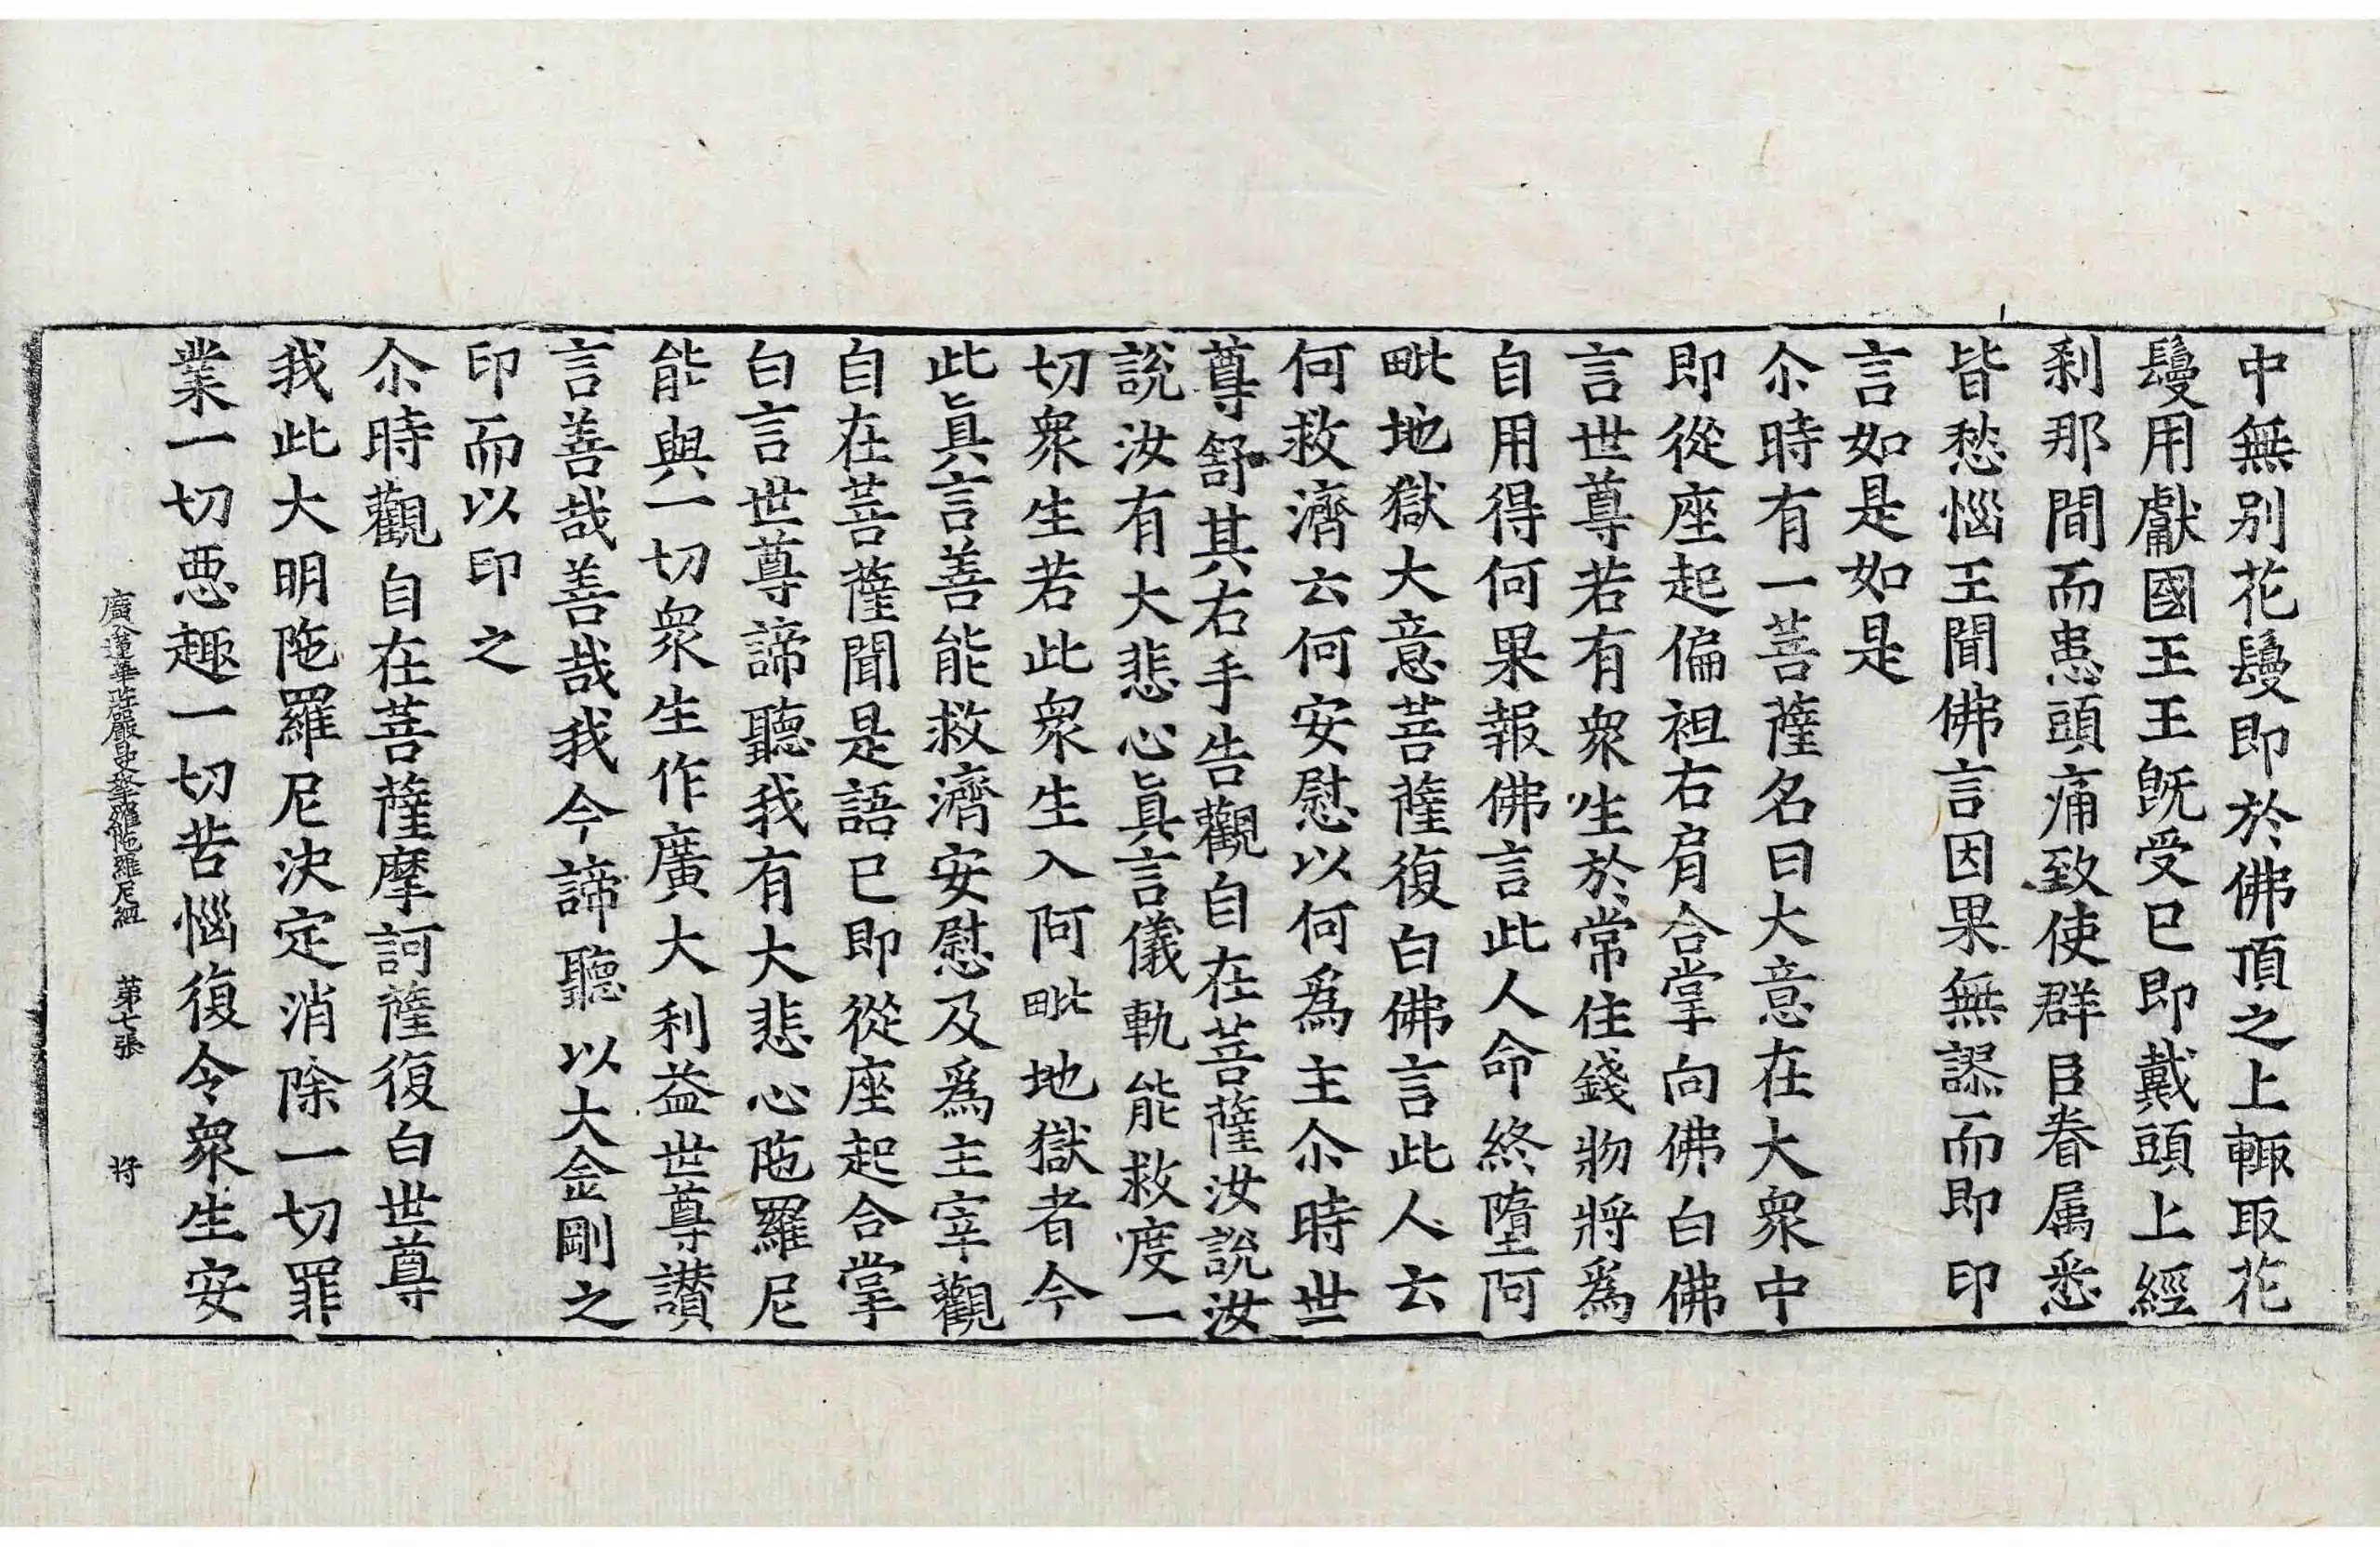 中無别花鬘即於佛頂之上輙取花
鬘用獻國王王旣受已即戴頭上經
剎那間而患頭痛致使群臣眷属悉
皆愁惱王聞佛言因果無謬而即印
言如是如是
尒時有一菩薩名曰大意在大衆中
即從座起偏袒右肩合掌向佛白佛
言世尊若有衆生於常住錢物將爲
自用得何果報佛言此人命終墮阿
毗地獄大意菩薩復白佛言此人云
何救濟云何安慰以何爲主尒時世
尊舒其右手告觀自在菩薩汝說汝
說汝有大悲心眞言儀軌能救度一
切衆生若此衆生入阿毗地獄者今
此眞言善能救濟安慰及爲主宰觀
自在菩薩聞是語已即從座起合掌
白言世尊諦聽我有大悲心陁羅尼
能與一切衆生作廣大利益世尊讃
言善哉善哉我今諦聽以大金剛之
印而以印之
尒時觀自在菩薩摩訶薩復白世尊
我此大明陁羅尼決定消除一切罪
業一切悪趣一切苦惱復令衆生安
廣大蓮華莊嚴曼拏羅陁羅尼經 第七張 将